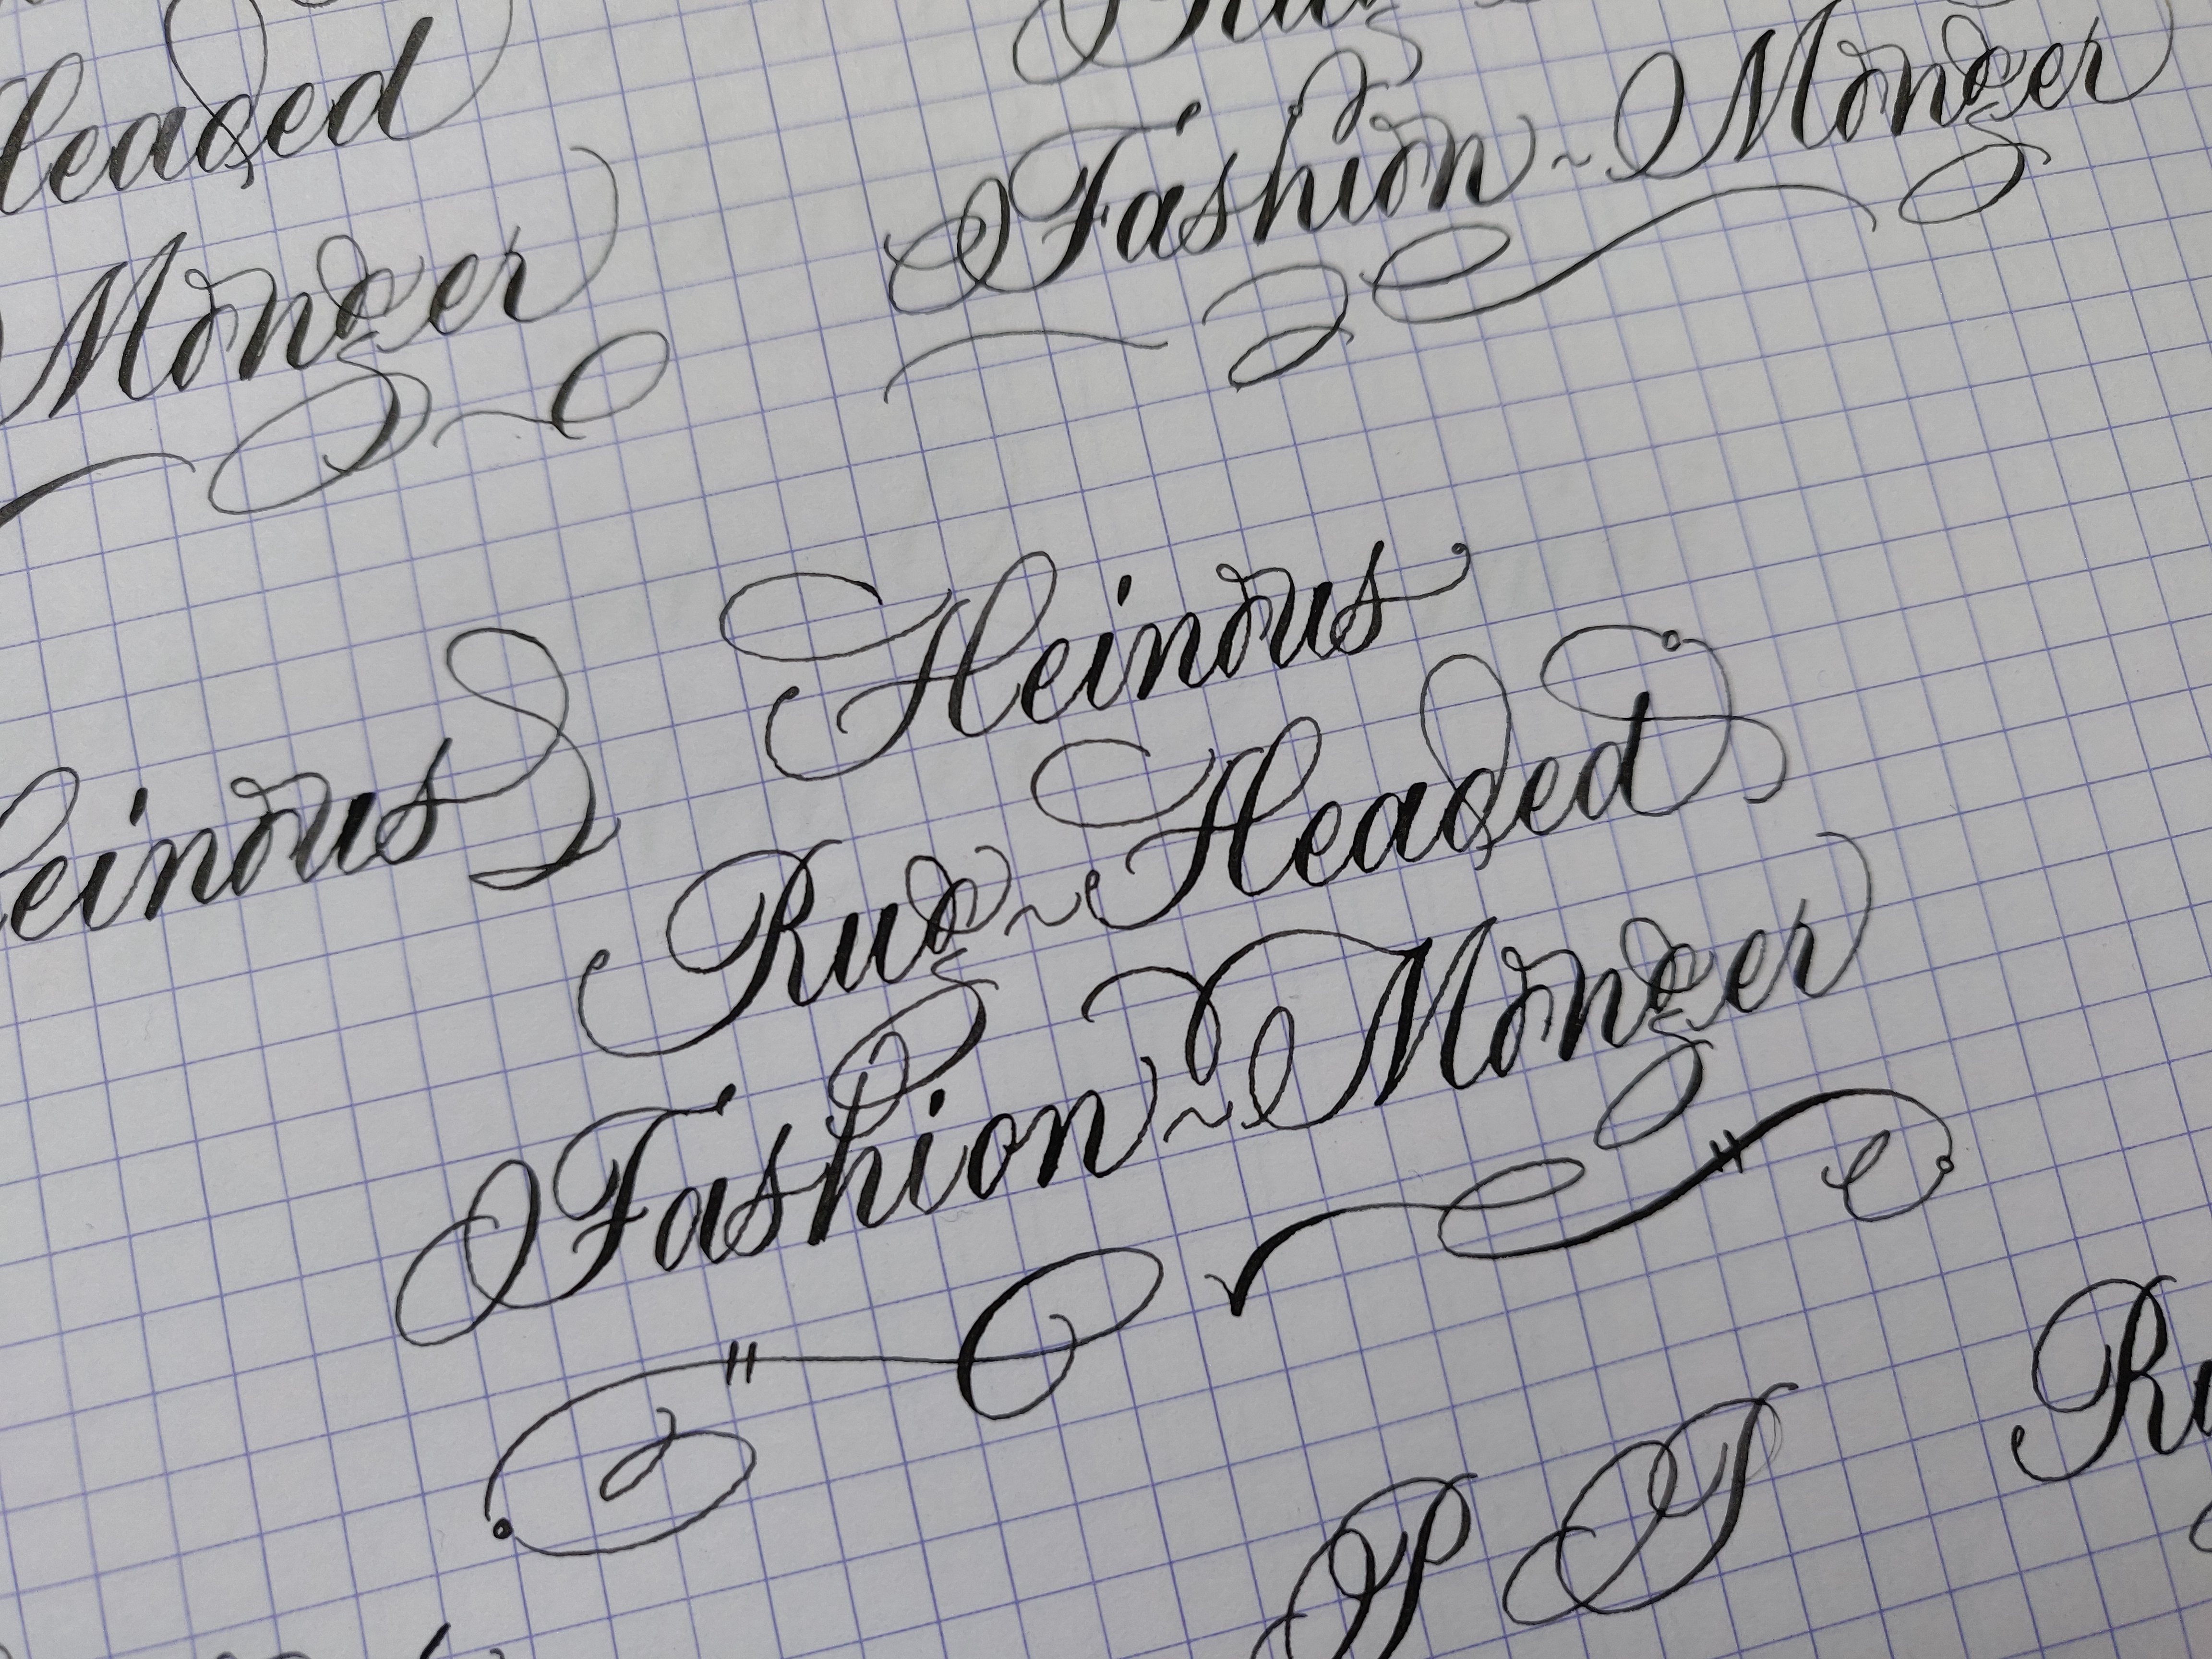 Headed
Monger
Fashion ~ Monger
Heinous
Heinous
Rug ~ Headed
Fashion ~ Monger
P T